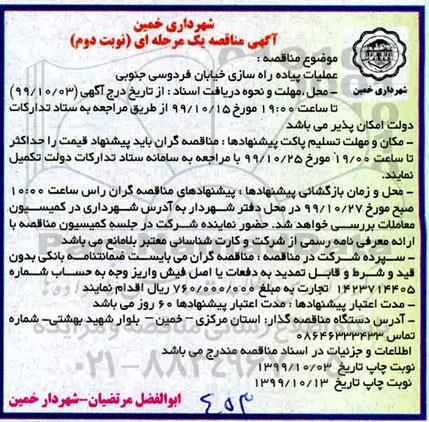 شهرداری خمین
آگهی مناقصه یک مرحله ای (نوبت دوم)
شهرداری خمین
موضوع مناقصه :
عملیات پیاده راه سازی خیابان فردوسی جنوبی
– محل،مهلت و نحوه دریافت اسناد : از تاریخ درج آگهی (۹۹/۱۰/۰۳)
تا ساعت ۱۹:۰۰ مورخ ۹۹/۱۰/۱۵ از طریق مراجعه به ستاد تدارکات
دولت امکان پذیر می باشد
– مکان و مهلت تسلیم پاکت پیشنهادها : مناقصه گران باید پیشنهاد قیمت را حداکثر
تا ساعت ۱۹/۰۰ مورخ ۹۹/۱۰/۲۵ با مراجعه به سامانه ستاد تدارکات دولت تکمیل
نمایند.
– محل و زمان بازگشائی پیشنهادها : پیشنهادهای مناقصه گران راس ساعت ۱۰:۰۰
صبح مورخ ۹۹/۱۰/۲۷ در محل دفتر شهردار به آدرس شهرداری در کمیسیون
معاملات بررسی خواهد شد. حضور نماینده شرکت در جلسه کمیسیون مناقصه با
ارائه معرفی نامه رسمی از شرکت و کارت شناسائی معتبر بلامانع می باشد
– سپرده شرکت در مناقصه : مناقصه گران می بایست ضمانتنامه بانکی بدون
قید و شرط و قابل تمدید به دفعات یا اصل فیش واریز وجه به حساب شماره
۱۴۲۳۷۱۴۴۰۵ تجارت به مبلغ ۷۶۰/۰۰۰/۰۰۰ ریال اقدام نمایند
– مدت اعتبار پیشنهادها : مدت اعتبار پیشنهادها ۶۰ روز می باشد
– آدرس دستگاه مناقصه گذار: استان مرکزی – خمین – بلوار شهید بهشتی– شماره
تماس۰۸۶۴۶۳۳۳۴۳۳
اطلاعات و جزئیات در اسناد مناقصه مندرج می باشد
نوبت چاپ تاریخ ۱۳۹۹/۱۰/۰۳
نوبت چاپ تاریخ ۱۳۹۹/۱۰/۱۳
ابوالفضل مرتضیان–شهردار خمین